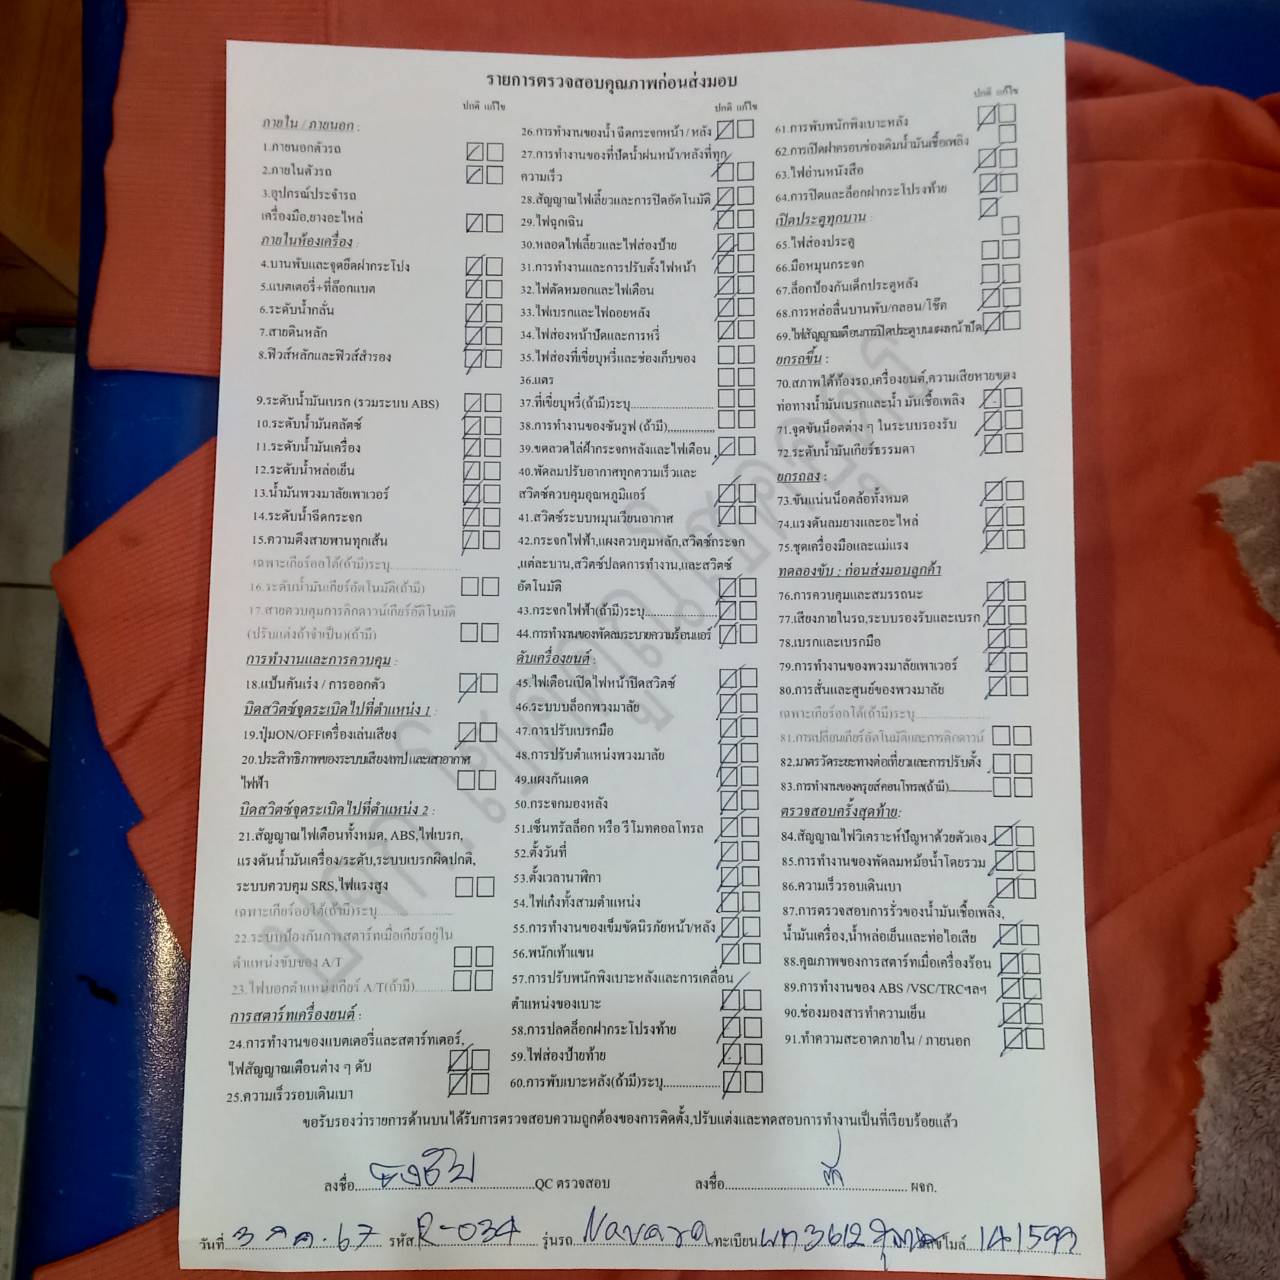 รายการตรวจสอบคุณภาพก่อนส่งมอบ
ปกติ แก้ไข
ภายใน / ภายนอก :
1.ภายนอกตัวรถ
2.ภายในตัวรถ
3.อุปกรณ์ประจำรถ
เครื่องมือ,ยางอะไหล่
ภายในห้องเครื่อง :
4.บานพับและจุดยึดฝากระโปง
5.แบตเตอรี่+ที่ล็อกแบต
6.ระดับน้ำกลั่น
7.สายดินหลัก
8.ฟิวส์หลักและฟิวส์สำรอง
9.ระดับน้ำมันเบรก (รวมระบบ ABS)
10.ระดับน้ำมันคลัตช์
11.ระดับน้ำมันเครื่อง
12.ระดับน้ำหล่อเย็น
13.น้ำมันพวงมาลัยเพาเวอร์
14.ระดับน้ำฉีดกระจก
15.ความตึงสายพานทุกเส้น
เฉพาะเกียร์ออโต้(ถ้ามี)ระบุ
16.ระดับน้ำมันเกียร์อัตโนมัติ(ถ้ามี)
17.สายควบคุมการคิกดาวน์เกียร์อัตโนมัติ
(ปรับแต่งถ้าจำเป็น)(ถ้ามี)
การทำงานและการควบคุม :
18.แป้นคันเร่ง / การออกตัว
บิดสวิตซ์จุดระเบิดไปที่ตำแหน่ง 1 :
19.ปุ่มON/OFFเครื่องเล่นเสียง
20.ประสิทธิภาพของระบบเสียง/เทป และเสาอากาศ
ไฟฟ้า
บิดสวิตซ์จุดระเบิดไปที่ตำแหน่ง 2 :
21.สัญญาณไฟเตือนทั้งหมด, ABS,ไฟเบรก,
แรงดันน้ำมันเครื่อง/ระดับ,ระบบเบรกผิดปกติ,
ระบบควบคุม SRS,ไฟแรงสูง
เฉพาะเกียร์ออโต้(ถ้ามี)ระบุ
22.ระบบป้องกันการสตาร์ทเมื่อเกียร์อยู่ใน
ตำแหน่งขับของ A/T
23.ไฟบอกตำแหน่งเกียร์ A/T(ถ้ามี)
การสตาร์ทเครื่องยนต์ :
24.การทำงานของแบตเตอรี่และสตาร์ทเตอร์,
ไฟสัญญาณเตือนต่าง ๆ ดับ
25.ความเร็วรอบเดินเบา
ปกติ แก้ไข
26.การทำงานของน้ำ ฉีดกระจกหน้า / หลัง
27.การทำงานของที่ปัดน้ำฝนหน้า/หลังที่ทุก
ความเร็ว
28.สัญญาณไฟเลี้ยวและการปิดอัตโนมัติ
29.ไฟฉุกเฉิน
30.หลอดไฟเลี้ยวและไฟส่องป้าย
31.การทำงานและการปรับตั้งไฟหน้า
32.ไฟตัดหมอกและไฟเตือน
33.ไฟเบรกและไฟถอยหลัง
34.ไฟส่องหน้าปัดและการหรี่
35.ไฟส่องที่เขี่ยบุหรี่และช่องเก็บของ
36.แตร
37.ที่เขี่ยบุหรี่(ถ้ามี)ระบุ
38.การทำงานของซันรูฟ (ถ้ามี)
39.ขดลวดไล่ฝ้ากระจกหลังและไฟเตือน
40.พัดลมปรับอากาศทุกความเร็วและ
สวิตซ์ควบคุมอุณหภูมิแอร์
41.สวิตซ์ระบบหมุนเวียนอากาศ
42.กระจกไฟฟ้า,แผงควบคุมหลัก,สวิตซ์กระจก
,แต่ละบาน,สวิตซ์ปลดการทำงาน,และสวิตซ์
อัตโนมัติ
43.กระจกไฟฟ้า(ถ้ามี)ระบุ
44.การทำงานของพัดลมระบายความร้อนแอร์
ดับเครื่องยนต์ :
45.ไฟเตือนเปิดไฟหน้าปิดสวิตซ์
46.ระบบบล็อกพวงมาลัย
47.การปรับเบรกมือ
48.การปรับตำแหน่งพวงมาลัย
49.แผงกันแดด
50.กระจกมองหลัง
51.เซ็นทรัลล็อก หรือ รีโมทคอลโทรล
52.ตั้งวันที่
53.ตั้งเวลานาฬิกา
54.ไฟเก๋งทั้งสามตำแหน่ง
55.การทำงานของเข็มขัดนิรภัยหน้า/หลัง
56.พนักเท้าแขน
57.การปรับพนักพิงเบาะหลังและการเคลื่อน
ตำแหน่งของเบาะ
58.การปลดล็อกฝากระโปรงท้าย
59.ไฟส่องป้ายท้าย
60.การพับเบาะหลัง(ถ้ามี)ระบุ
ปกติ แก้ไข
61.การพับพนักพิงเบาะหลัง
62.การเปิดฝาครอบช่องเติมน้ำมันเชื้อเพลิง
63.ไฟอ่านหนังสือ
64.การปิดและล็อกฝากระโปรงท้าย
เปิดประตูทุกบาน :
65.ไฟส่องประตู
66.มือหมุนกระจก
67.ล็อกป้องกันเด็กประตูหลัง
68.การหล่อลื่นบานพับ/กลอน/โช๊ค
69.ไฟสัญญาณเตือนการปิดประตูบนแผงหน้าปัด
ยกรถขึ้น :
70.สภาพใต้ท้องรถ,เครื่องยนต์,ความเสียหายของ
ท่อทางน้ำมันเบรกและน้ำ มันเชื้อเพลิง
71.จุดขันน็อตต่าง ๆ ในระบบรองรับ
72.ระดับน้ำมันเกียร์ธรรมดา
ยกรถลง :
73.ขันแน่นน็อตล้อทั้งหมด
74.แรงดันลมยางและอะไหล่
75.ชุดเครื่องมือและแม่แรง
ทดลองขับ : ก่อนส่งมอบลูกค้า
76.การควบคุมและสมรรถนะ
77.เสียงภายในรถ,ระบบรองรับและเบรก
78.เบรกและเบรกมือ
79.การทำงานของพวงมาลัยเพาเวอร์
80.การสั่นและศูนย์ของพวงมาลัย
เฉพาะเกียร์ออโต้(ถ้ามี)ระบุ
81.การเปลี่ยนเกียร์อัตโนมัติและการคิกดาวน์
82.มาตรวัดระยะทางต่อเที่ยวและการปรับตั้ง
83.การทำงานของครูยส์คอนโทรล(ถ้ามี)
ตรวจสอบครั้งสุดท้าย:
84.สัญญาณไฟวิเคราะห์ปัญหาด้วยตัวเอง
85.การทำงานของพัดลมหม้อน้ำโดยรวม
86.ความเร็วรอบเดินเบา
87.การตรวจสอบการรั่วของน้ำมันเชื้อเพลิง,
น้ำมันเครื่อง,น้ำหล่อเย็นและท่อไอเสีย
88.คุณภาพของการสตาร์ทเมื่อเครื่องร้อน
89.การทำงานของ ABS /VSC/TRCฯลฯ
90.ช่องมองสารทำความเย็น
91.ทำความสะอาดภายใน / ภายนอก
ขอรับรองว่ารายการด้านบนได้รับการตรวจสอบความถูกต้องของการติดตั้ง,ปรับแต่งและทดสอบการทำงานเป็นที่เรียบร้อยแล้ว
ลงชื่อ QC ตรวจสอบ ลงชื่อ ผจก.
วันที่ 3 ก.ค. 67 รหัส R-034 รุ่นรถ Navara ทะเบียน 3612 เลขไมล์ 141593